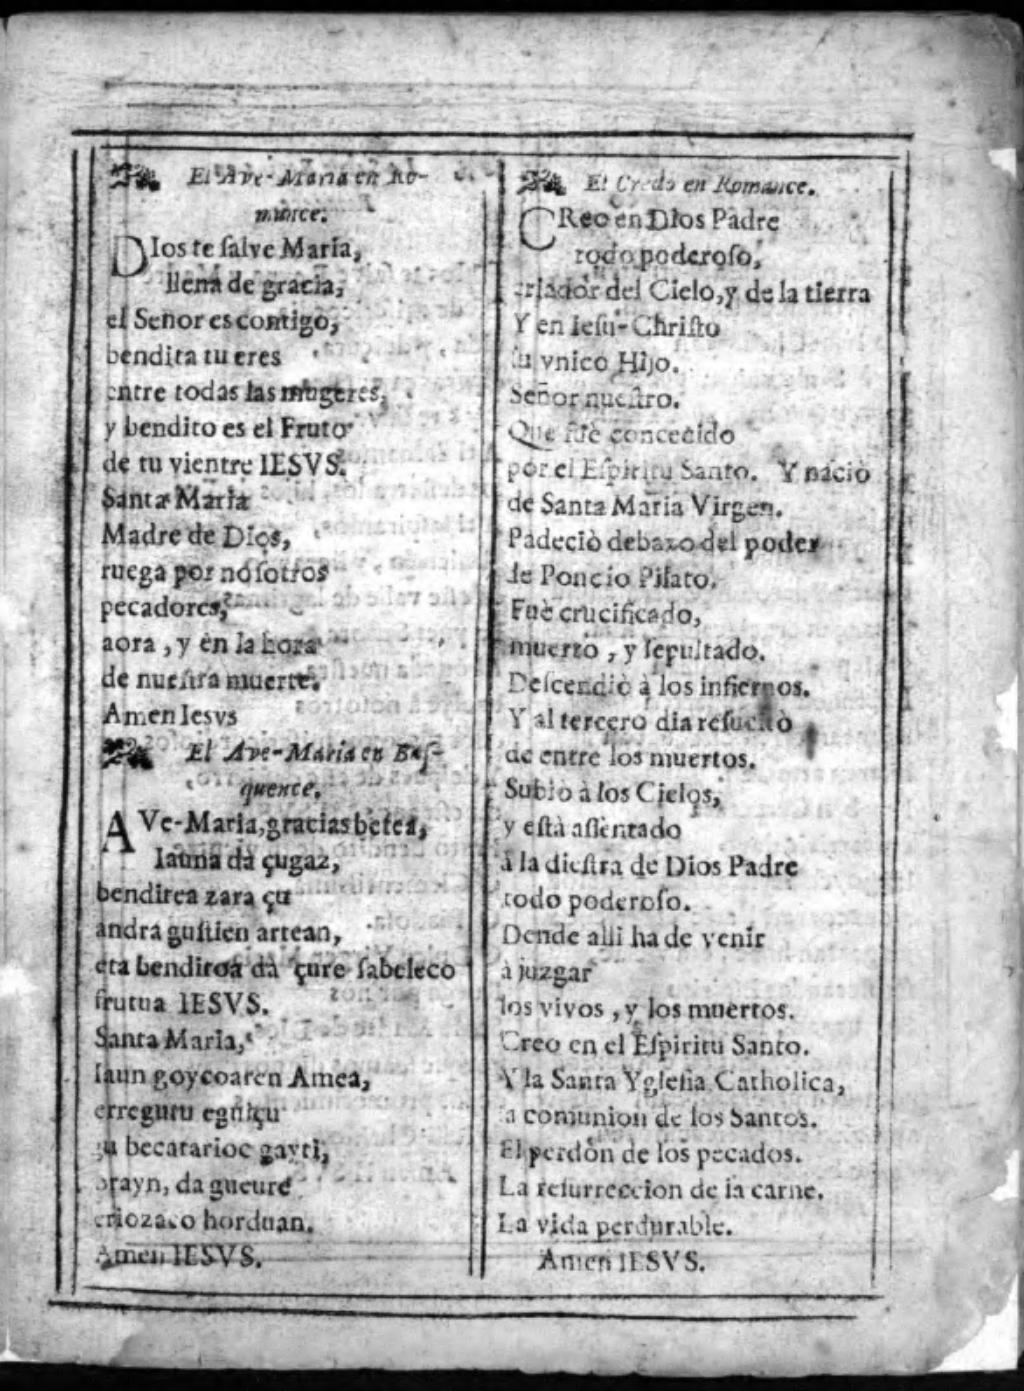 El Ave-Maria en Ro-
mance.
DIos te salve Maria,
llena de gracia,
el Señor es contigo,
bendita tu eres
entre todas las mugeres,
y bendito es el Fruto
de tu vientre IESVS.
Santa Maria
Madre de Dios,
ruega por nosotros
pecadores,
aora, y en la hora
de nuestra muerte.
Amen Iesvs
El Ave-Maria en Bas-
quence.
AVe-Maria, gracias betea,
Iauna da çugaz,
bendicea zara çu
andra gustien artean,
eta bendicoa da çure sabeleco
frutua IESVS.
Santa Maria,
Iaun goycoaren Amea,
erregutu eguiçu
gu becatarioc gayti,
orayn, da gueure
eriozaco horduan.
Amen IESVS.
El Credo en Romance.
CReo en DIos Padre
todo poderoso,
criador del Cielo, y de la tierra
Y en Iesu-Christo
su vnico Hijo.
Señor nuestro.
Que fuè concebido
por el Espiritu Santo. Y naciò
de Santa Maria Virgen.
Padeciò debaxo del poder
de Poncio Pilato.
Fuè crucificado,
muerto, y sepultado.
Descendiò à los infiernos.
Y al tercero dia resucitò
de entre los muertos.
Subiò à los Cielos,
y està assentado
à la diestra de Dios Padre
todo poderoso.
Dende alli ha de venir
à juzgar
los vivos, y los muertos.
Creo en el Espiritu Santo.
Y la Santa Yglesia Catholica,
la comunion de los Santos.
El perdòn de los pecados.
La resurreccion de la carne.
La vida perdurable.
Amen IESVS.